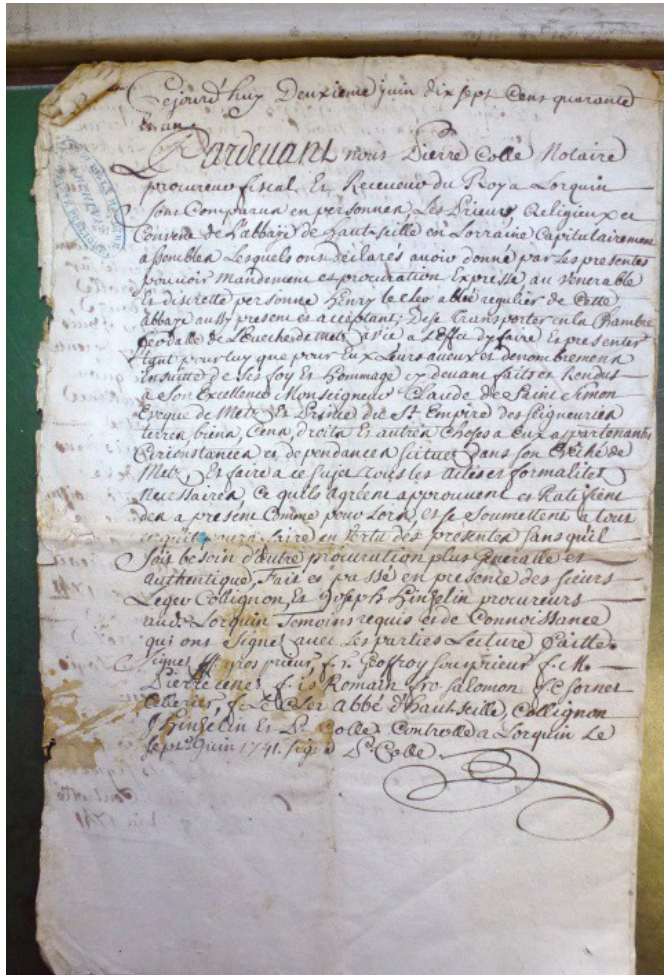 Cejourd'huy Deuxieme juin dix sept Cens quarante
Et un
Pardevant nous Pierre Colle Notaire
procureur fiscal Et Receveur du Roy a Lorquin
sont Comparus en personnes Les Prieur, Religieux et
Convent de L'abbaye de haut-seille en Lorraine Capitulairement
assembles Lesquels ont déclarés avoir donné par Les presentes
pouvoir mandement et procuration Expresse au venerable
Et discrette personne Henry abbé regulier de Cette
abbaye aussy present et acceptant, De se transporter en la Chambre
feodalle de L'Eveché de Metz a vic a L'Effet d'y faire Et presenter
tant pour luy que pour Eux Leurs aveux et denombremens
Ensuitte de ses foy Et hommage cy devant faits et Rendus
a Son Excellence Monseigneur Claude de Saint Simon
Eveque de Metz Et Prince du St Empire des seigneuries
terres, biens, Cens, droits Et autres Choses a Eux appartenants
Circonstances et dependances scitues Dans son Eveché de
Metz, Et faire a ce sujet tous les actes et formalités
Necessaires, Ce quils agréent approuvent et Ratifient
des a present Comme pour Lors, et se soumettent a tout
ce quil poura faire en vertu des presentes sans quil
soit besoin d'autre procuration plus Generalle et
authentique, Fait et passé en presence des sieurs
Leger Collignon, Et Joseph hingelin procureurs
aud. Lorquin temoins requis et de Connoissance
qui ont signes avec Les parties Lecture faitte.
signes prieur, f. Geoffroy souprieur f.
Pierre f. Romain salomon Sornet
Cellerier, abbé d'haut-seille, Collignon
J hingelin Et P. Colle. Controllé a Lorquin Le
sept juin 1741. signé P. Colle